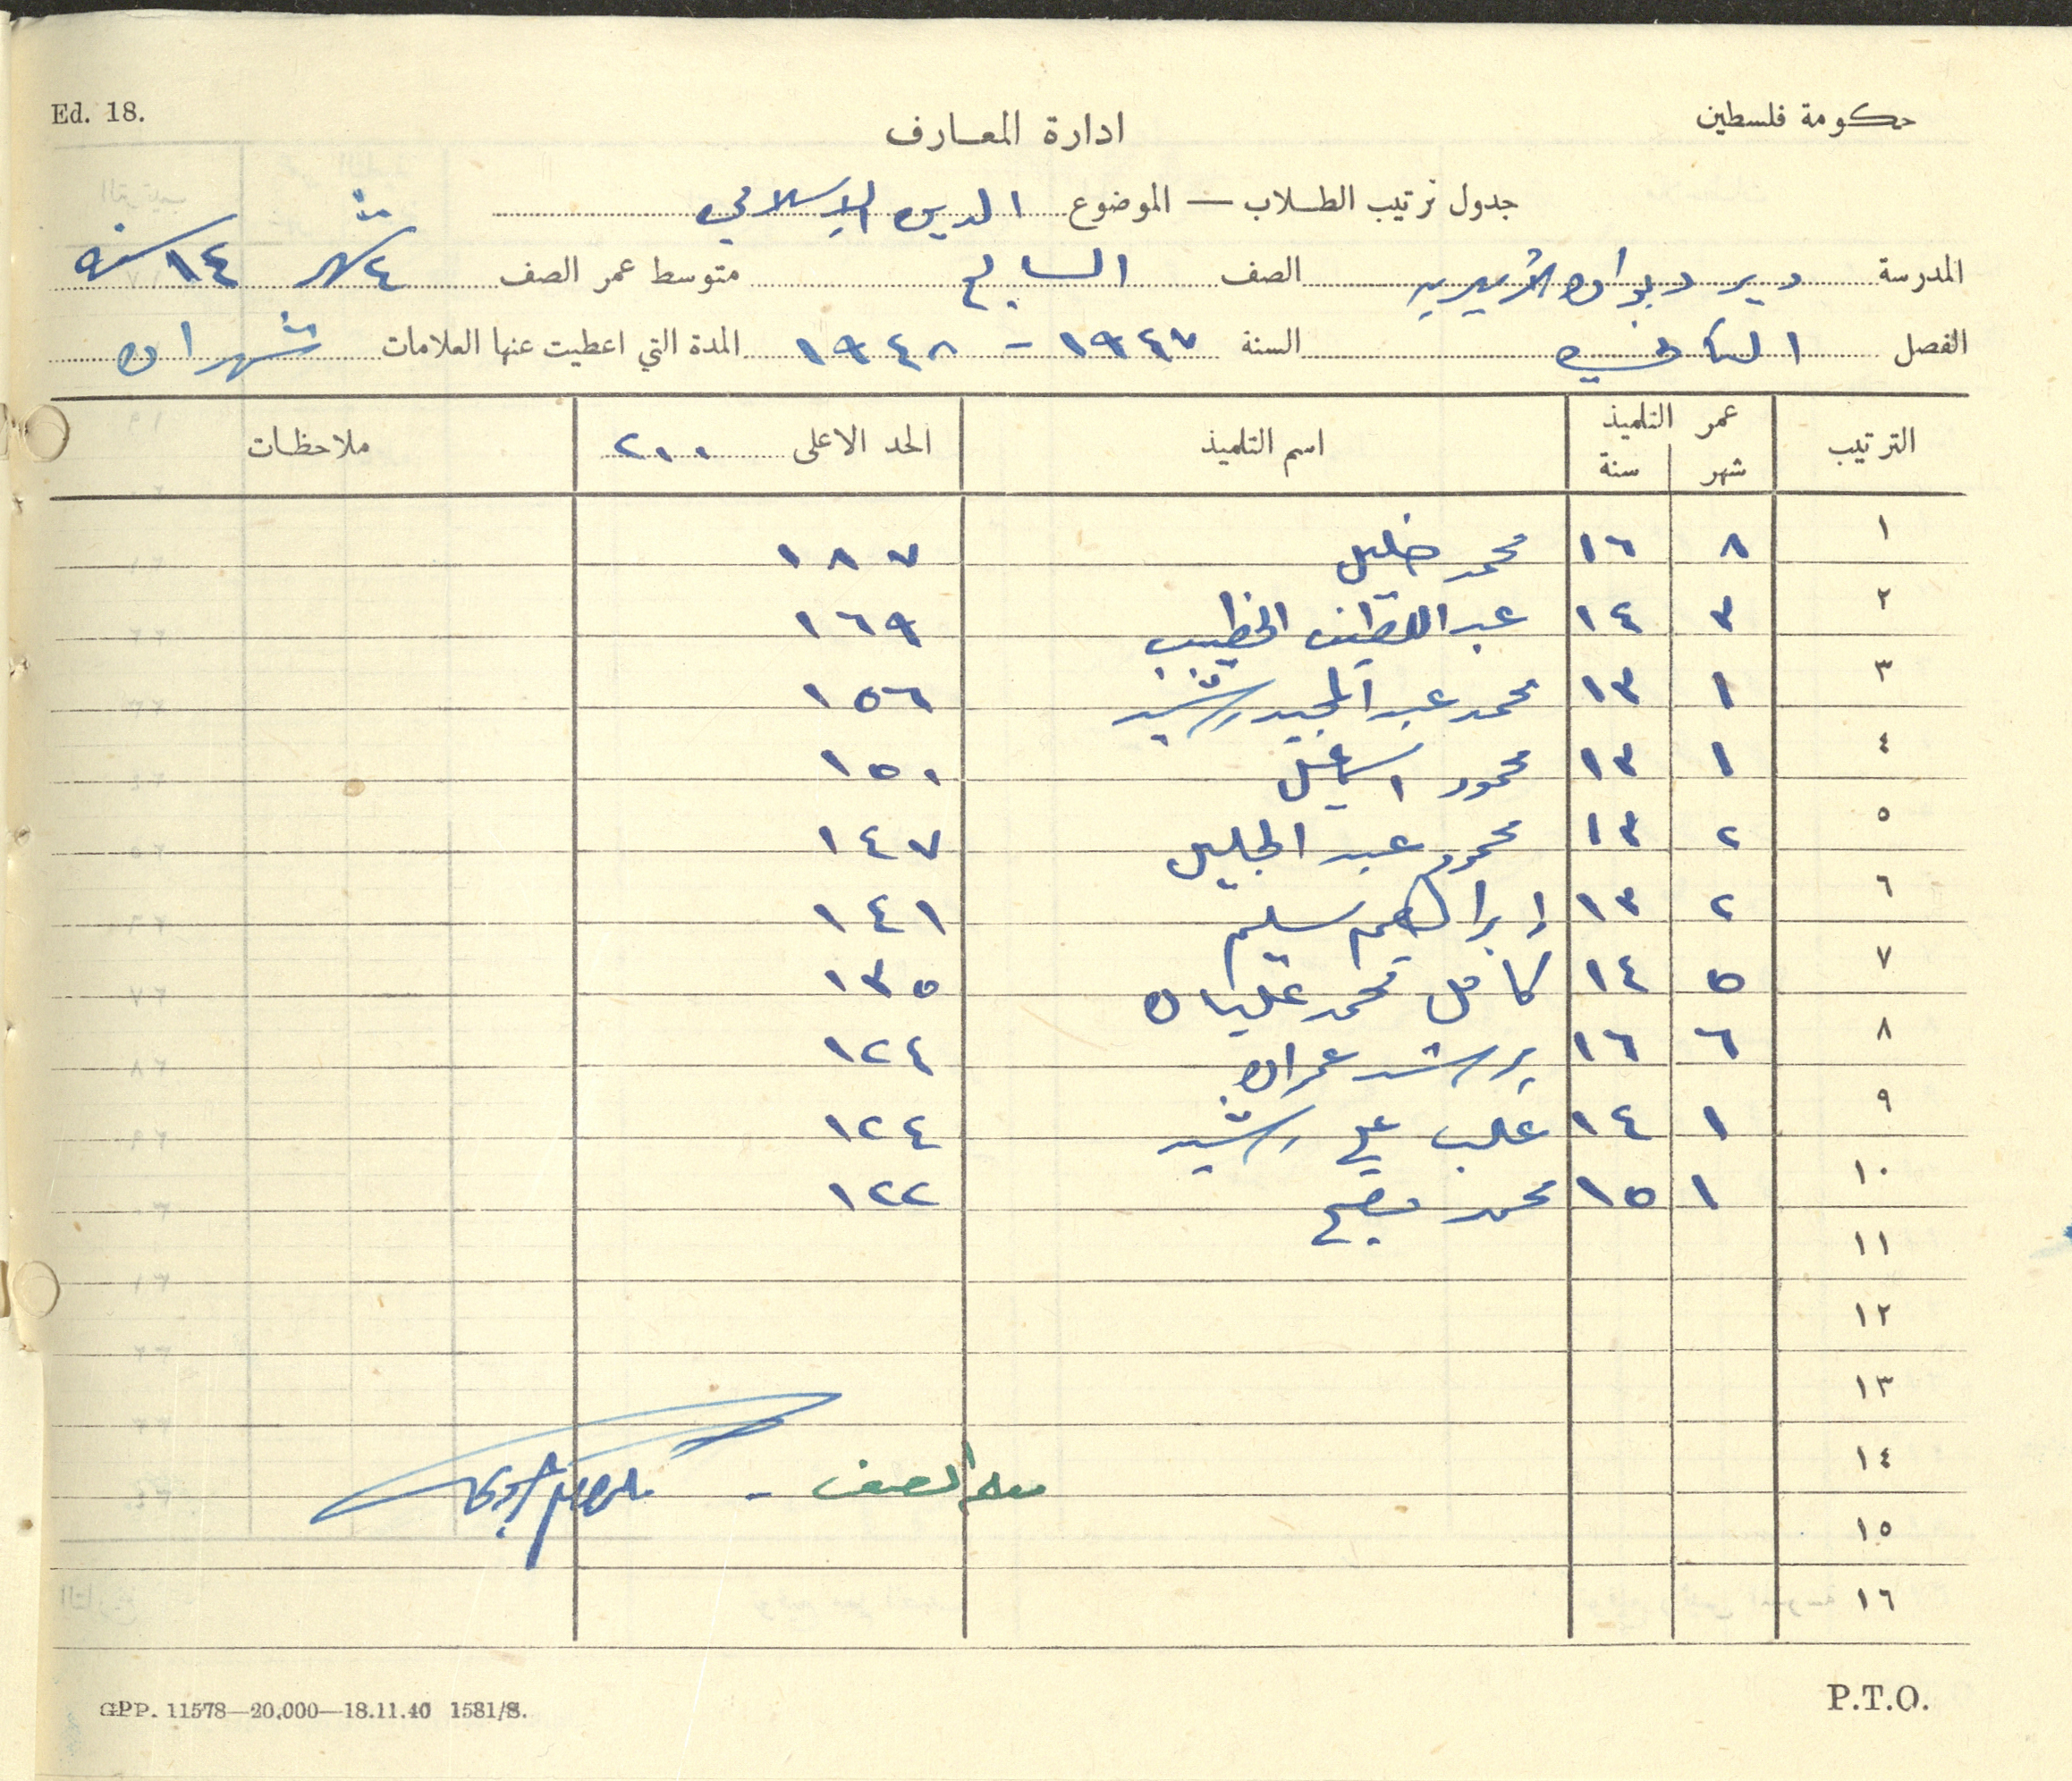 Ed. 18.
حكومة فلسطين
ادارة المعارف
جدول ترتيب الطلاب — الموضوع الدين الإسلامي
المدرسة دير دبوان الأميرية الصف السابع متوسط عمر الصف ٤ شهر ١٤ سنه
الفصل الثاني السنة ١٩٤٧ - ١٩٤٨ المدة التي اعطيت عنها العلامات شهران
الترتيب عمر التلميذ شهر سنة اسم التلميذ الحد الاعلى ٢٠٠ ملاحظات
١ ٨ ١٦ محمد خليل ١٨٧
٢ ٣ ١٤ عبد اللطيف الخطيب ١٦٩
٣ ١ ١٣ محمد عبد المجيد رشيد ١٥٦
٤ ١ ١٣ محمود اسماعيل ١٥٠
٥ ٢ ١٣ محمود عبد الجليل ١٤٧
٦ ٢ ١٣ إبراهيم سليم ١٤١
٧ ٥ ١٤ كامل محمد عليان ١٣٥
٨ ٦ ١٦ يرشد عمران ١٢٤
٩ ١ ١٤ علي رشيد ١٢٤
١٠ ١ ١٥ محمد ١٢٢
١١
١٢
١٣
١٤ معلم الصف -
١٥
١٦
GPP. 11578—20,000—18.11.40 1581/S.
P.T.O.